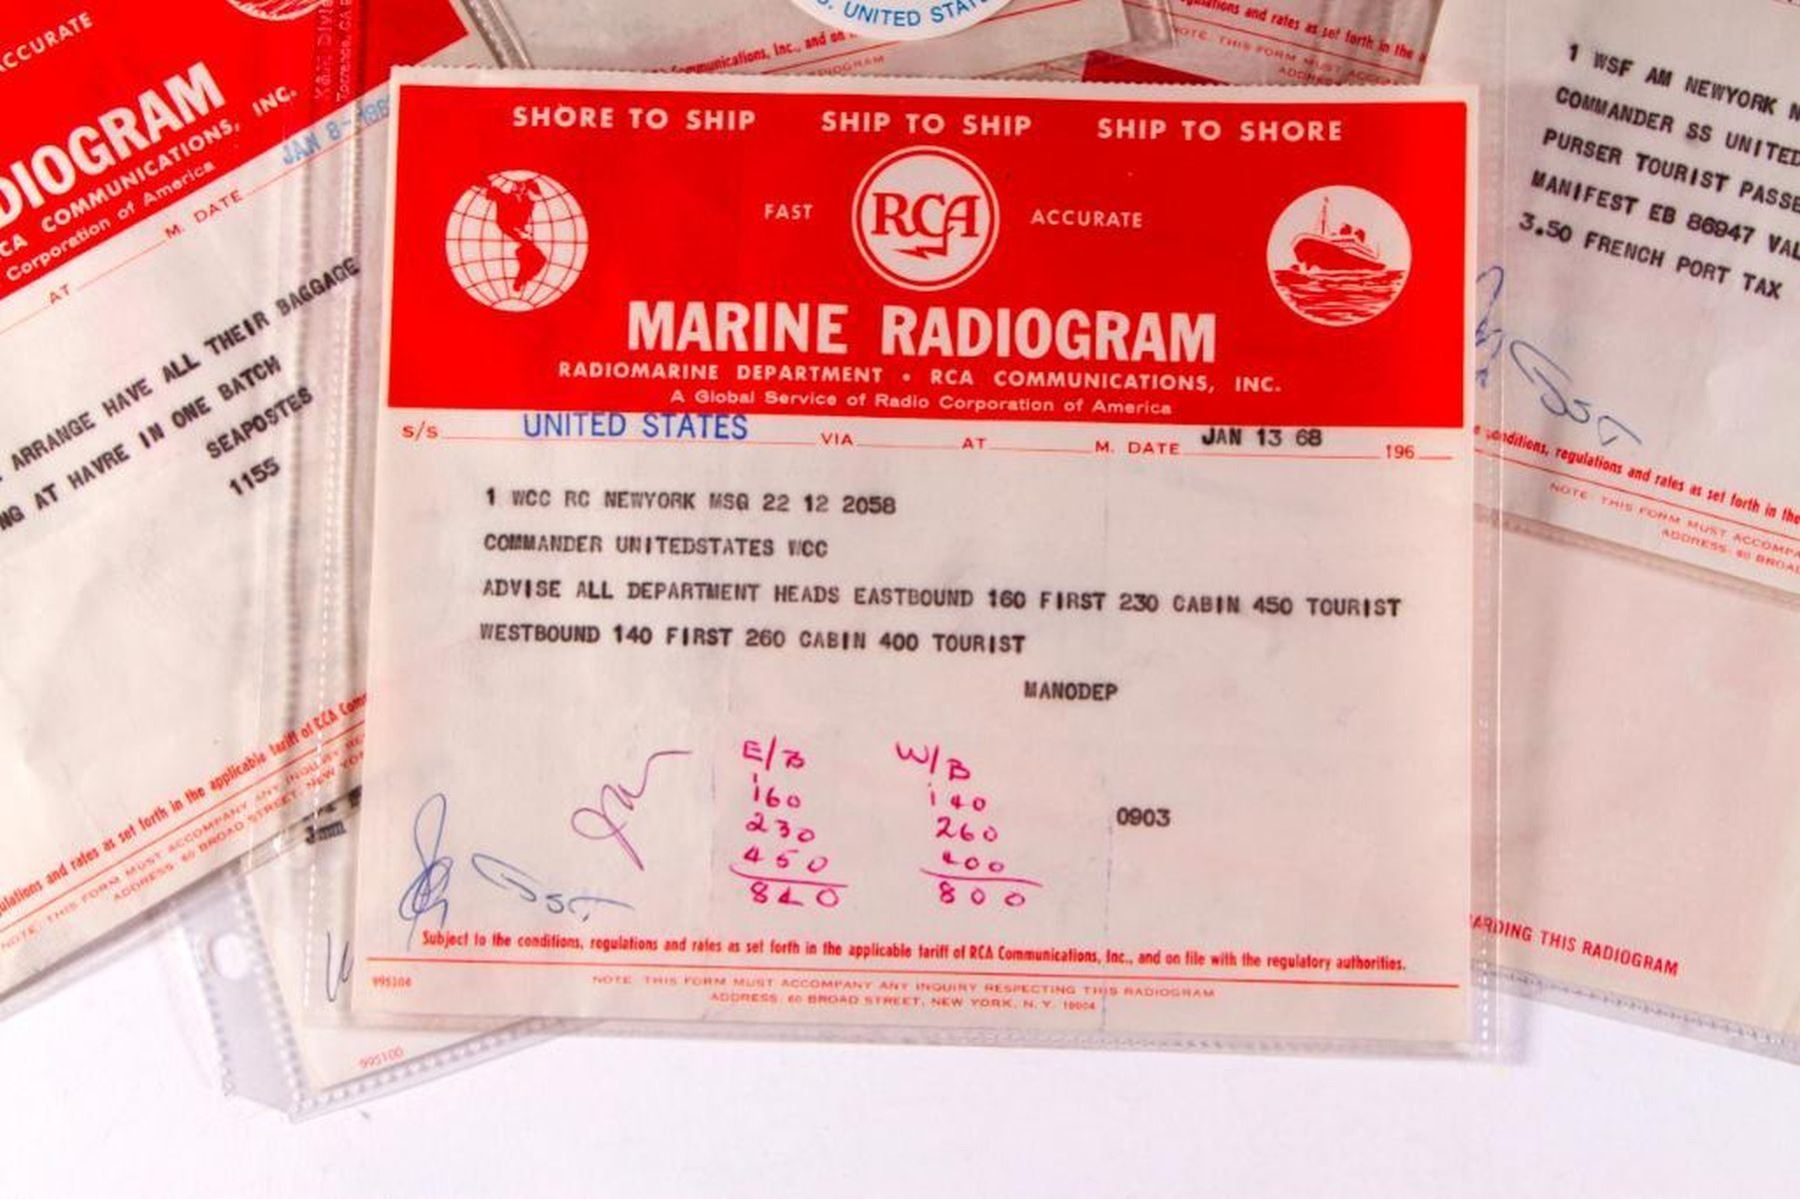 SHORE TO SHIP SHIP TO SHIP SHIP TO SHORE
FAST RCA ACCURATE
MARINE RADIOGRAM
RADIOMARINE DEPARTMENT • RCA COMMUNICATIONS, INC.
A Global Service of Radio Corporation of America
S/S UNITED STATES VIA AT M. DATE JAN 13 68 196
1 WCC RC NEWYORK MSG 22 12 2058
COMMANDER UNITEDSTATES WCC
ADVISE ALL DEPARTMENT HEADS EASTBOUND 160 FIRST 230 CABIN 450 TOURIST
WESTBOUND 140 FIRST 260 CABIN 400 TOURIST
MANODEP
E/B W/B
160 140
230 260
450 400
840 800
0903
Subject to the conditions, regulations and rates as set forth in the applicable tariff of RCA Communications, Inc., and on file with the regulatory authorities.
995104
NOTE: THIS FORM MUST ACCOMPANY ANY INQUIRY RESPECTING THIS RADIOGRAM
ADDRESS: 60 BROAD STREET, NEW YORK, N. Y. 10004
ACCURATE
DIOGRAM
CA COMMUNICATIONS, INC.
Corporation of America
AT M. DATE JAN 8-
ARRANGE HAVE ALL THEIR BAGGAGE
NG AT HAVRE IN ONE BATCH
SEAPOSTES
1155
ulations and rates as set forth in the applicable tariff of RCA Com
NOTE: THIS FORM MUST ACCOMPANY ANY INQUIRY RE
ADDRESS: 60 BROAD STREET, NEW YO
995100
UNITED STAT
Communications, Inc., and on
ulations and rates as set forth in the
NOTE: THIS FORM MUST ACCOMPA
1 WSF AM NEWYORK N
COMMANDER SS UNITED
PURSER TOURIST PASSE
MANIFEST EB 86947 VAL
3.50 FRENCH PORT TAX
conditions, regulations and rates as set forth in the
NOTE: THIS FORM MUST ACCOMPA
ADDRESS: 60 BROAD
ARDING THIS RADIOGRAM